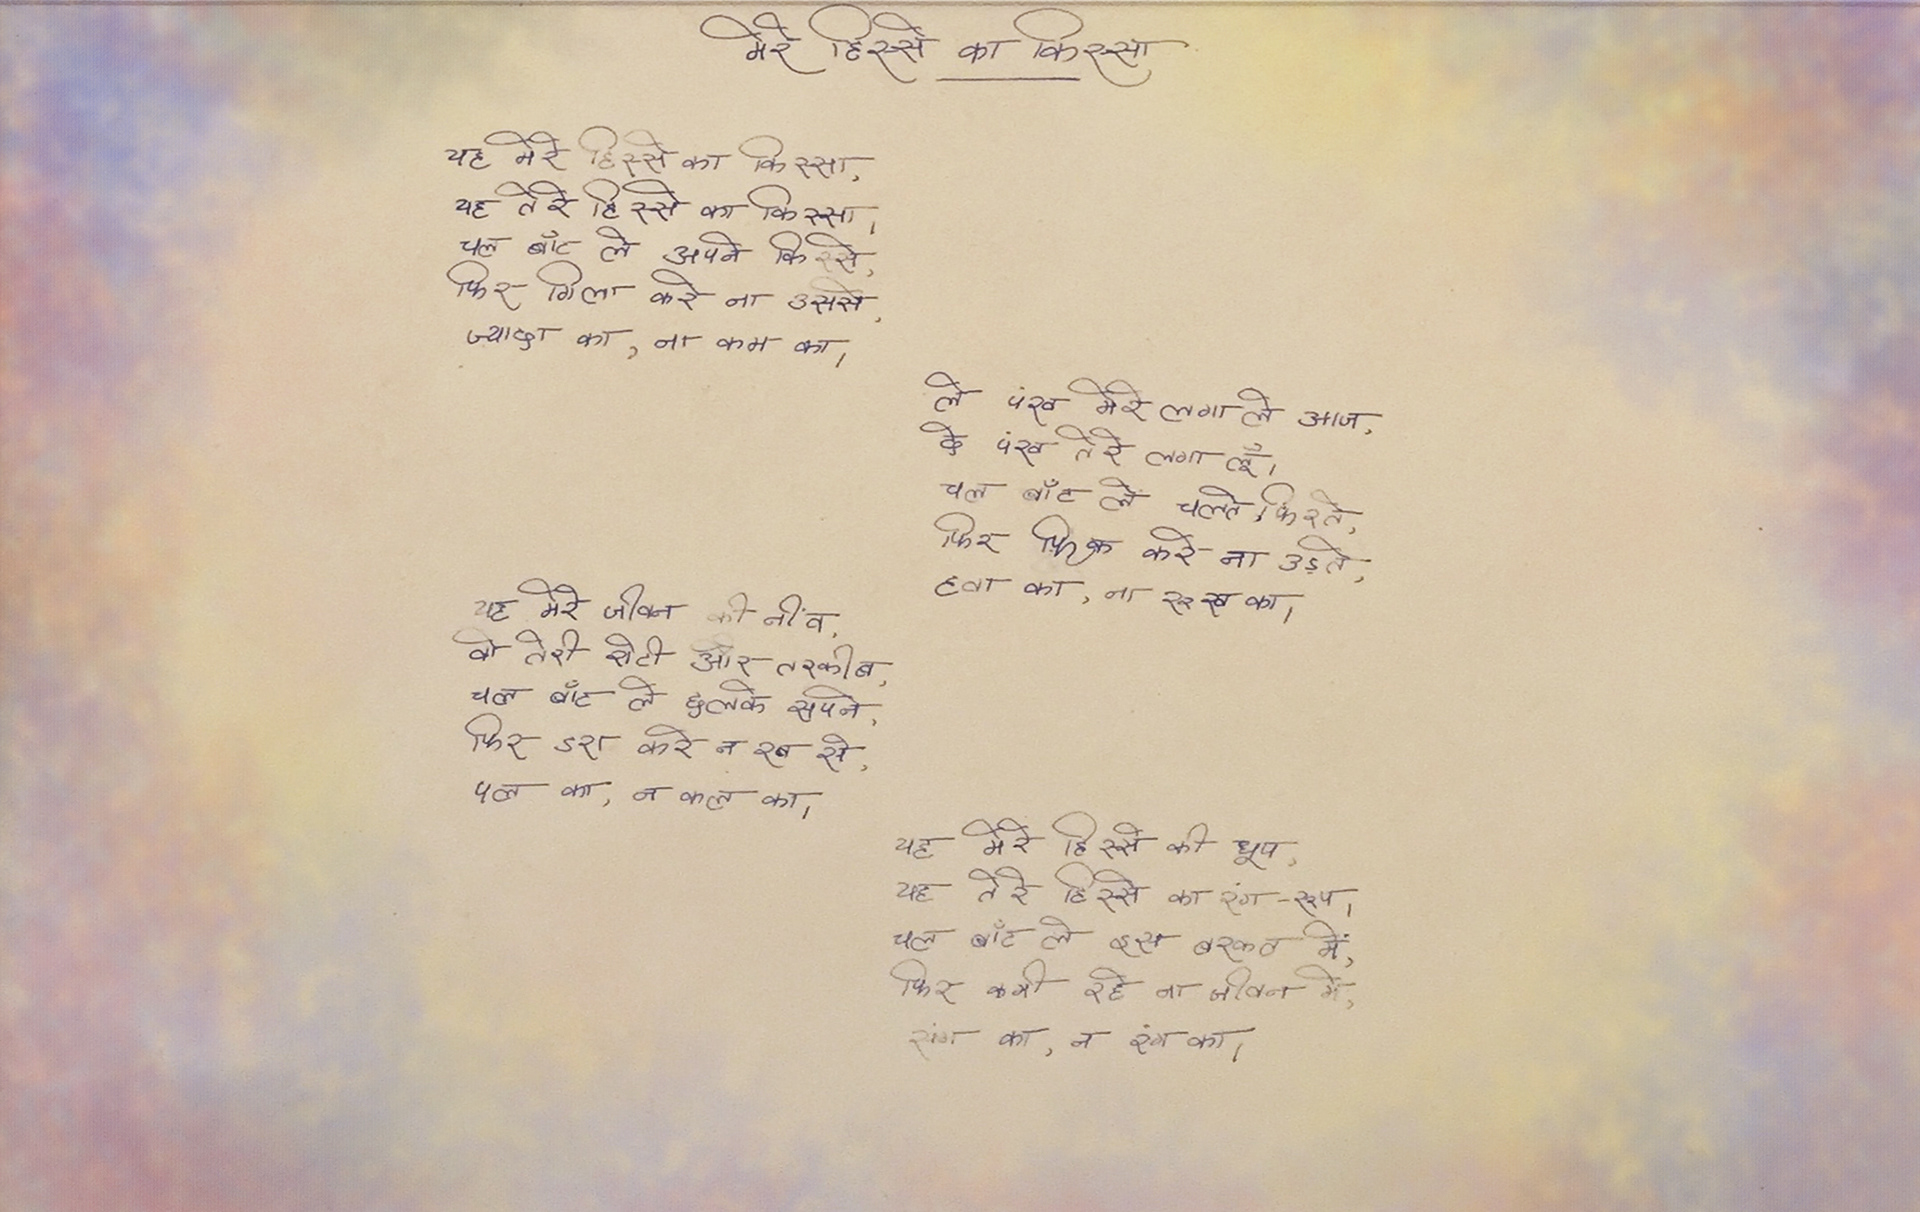 मेरे हिस्से का किस्सा
यह मेरे हिस्से का किस्सा,
यह तेरे हिस्से का किस्सा,
चल बाँट ले अपने किस्से,
फिर गिला करे ना उससे,
ज्यादा का, ना कम का,
ले पंख मेरे लगा ले आज,
के पंख तेरे लगा लूँ,
चल बाँट ले चलते, फिरते,
फिर फ़िक्र करे ना उड़ते,
हवा का, ना रूख का,
यह मेरे जीवन की नींव,
वो तेरी रोटी और तरकीब,
चल बाँट ले छलके सपने,
फिर डरा करे न रब से,
पल का, न कल का,
यह मेरे हिस्से की धूप,
यह तेरे हिस्से का रंग-रूप,
चल बाँट ले इस बरकत में,
फिर कमी रहे ना जीवन में,
संग का, न रंग का,